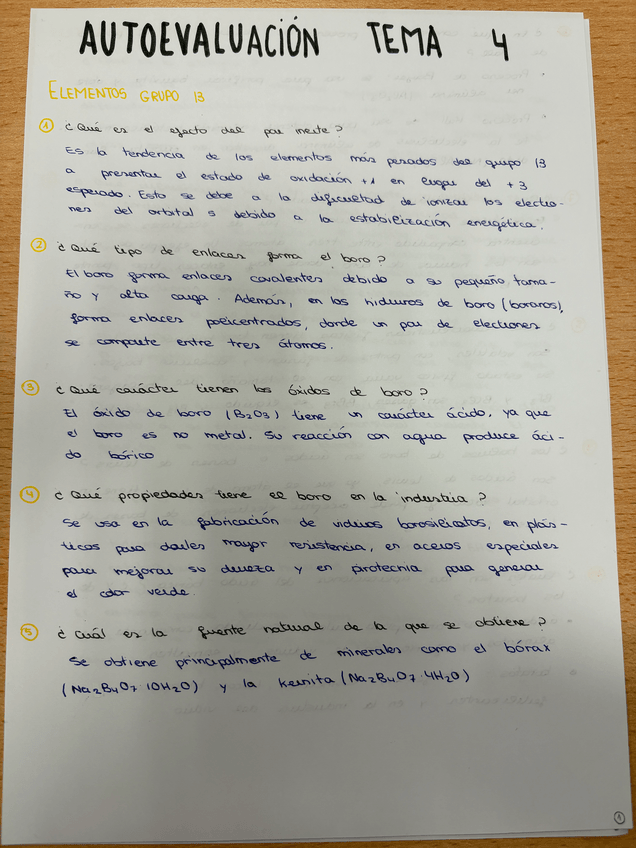 AUTOEVALUACIÓN TEMA 4
ELEMENTOS GRUPO 13
1 ¿Qué es el efecto del par inerte?
Es la tendencia de los elementos más pesados del grupo 13
a presentar el estado de oxidación +1 en lugar del +3
esperado. Esto se debe a la dificultad de ionizar los electro-
nes del orbital s debido a la estabilización energética.
2 ¿Qué tipo de enlaces forma el boro?
El boro forma enlaces covalentes debido a su pequeño tama-
ño y alta carga. Además, en los hidruros de boro (boranos),
forma enlaces policentrados, donde un par de electrones
se comparte entre tres átomos.
3 ¿Qué carácter tienen los óxidos de boro?
El óxido de boro (B2O3) tiene un carácter ácido, ya que
el boro es no metal. Su reacción con agua produce áci-
do bórico
4 ¿Qué propiedades tiene el boro en la industria?
Se usa en la fabricación de vidrios borosilicatos, en plás-
ticos para darles mayor resistencia, en aceros especiales
para mejorar su dureza y en pirotecnia para generar
el color verde.
5 ¿Cuál es la fuente natural de la que se obtiene?
Se obtiene principalmente de minerales como el bórax
(Na2B4O7·10H2O) y la kernita (Na2B4O7·4H2O)
1